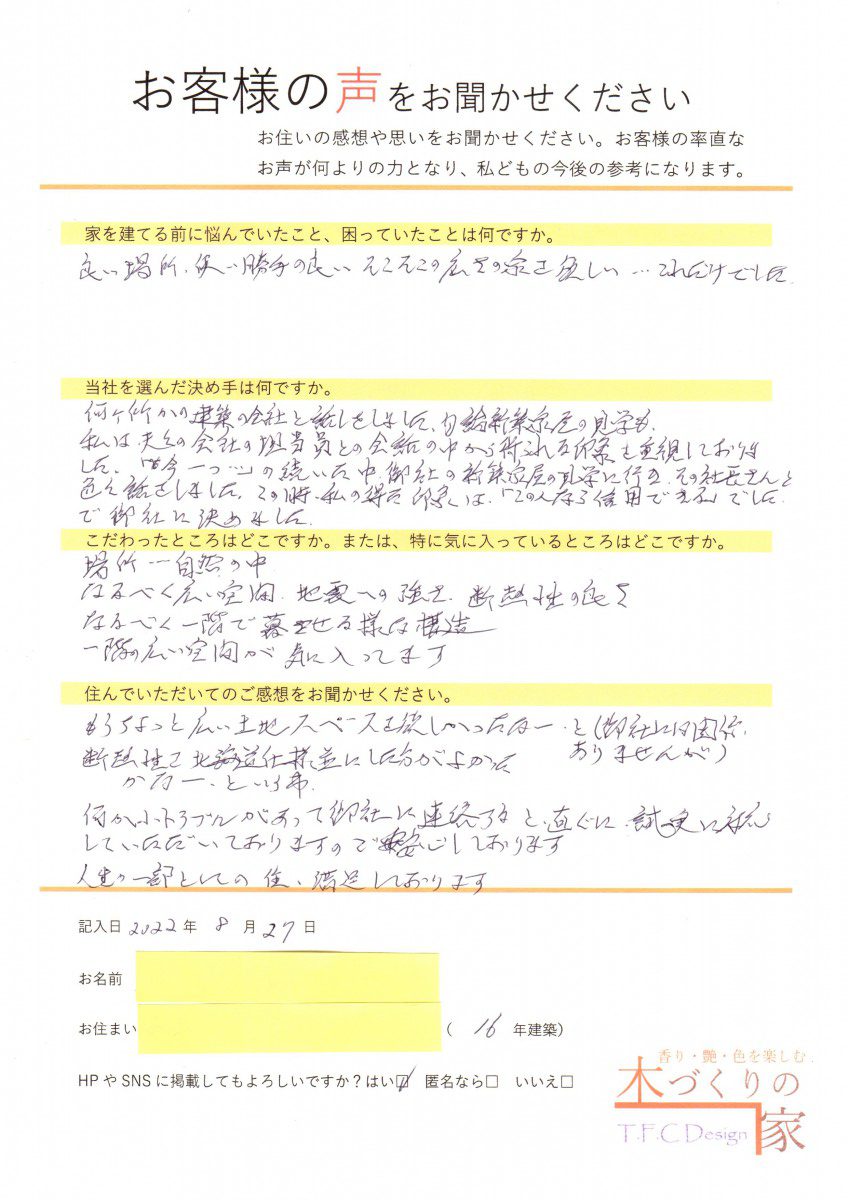 お客様の声をお聞かせください
お住いの感想や思いをお聞かせください。お客様の率直な
お声が何よりの力となり、私どもの今後の参考になります。
家を建てる前に悩んでいたこと、困っていたことは何ですか。
良い場所、使い勝手の良い そこそこの広さの家を欲しい…これだけでした
当社を選んだ決め手は何ですか。
何ヶ所かの建築の会社と話しをしました、勿論新築家屋の見学も、
私は夫々の会社の担当員との会話の中から得られる印象を重視しておりま
した、"今一つ…"の続いた中、御社の新築家屋の見学に行き、その社長さんと
色々話をしました。この時、私の得た印象は、「この人なら信用できる」でした
で御社に決めました。
こだわったところはどこですか。または、特に気に入っているところはどこですか。
場所―自然の中
なるべく広い空間、地震への強さ、断熱性の良さ
なるべく一階で暮させる様な構造
一階の広い空間が気に入ってます
住んでいただいてのご感想をお聞かせください。
もうちょっと広い土地スペースを欲しかったなー、と(御社には関係
ありませんが)
断熱性で北海道仕様並にした方がよかった
かなー、という事、
何か小トラブルがあって御社に連絡すると、直ぐに、誠実に対応
していただいておりますので安心しております
人生の一部としての住、満足しております
記入日 2022年 8月 27日
お名前
お住まい ( 16 年建築)
HPやSNSに掲載してもよろしいですか?はい☑ 匿名なら□ いいえ□
香り・艶・色を楽しむ
木づくりの
家
T.F.C Design